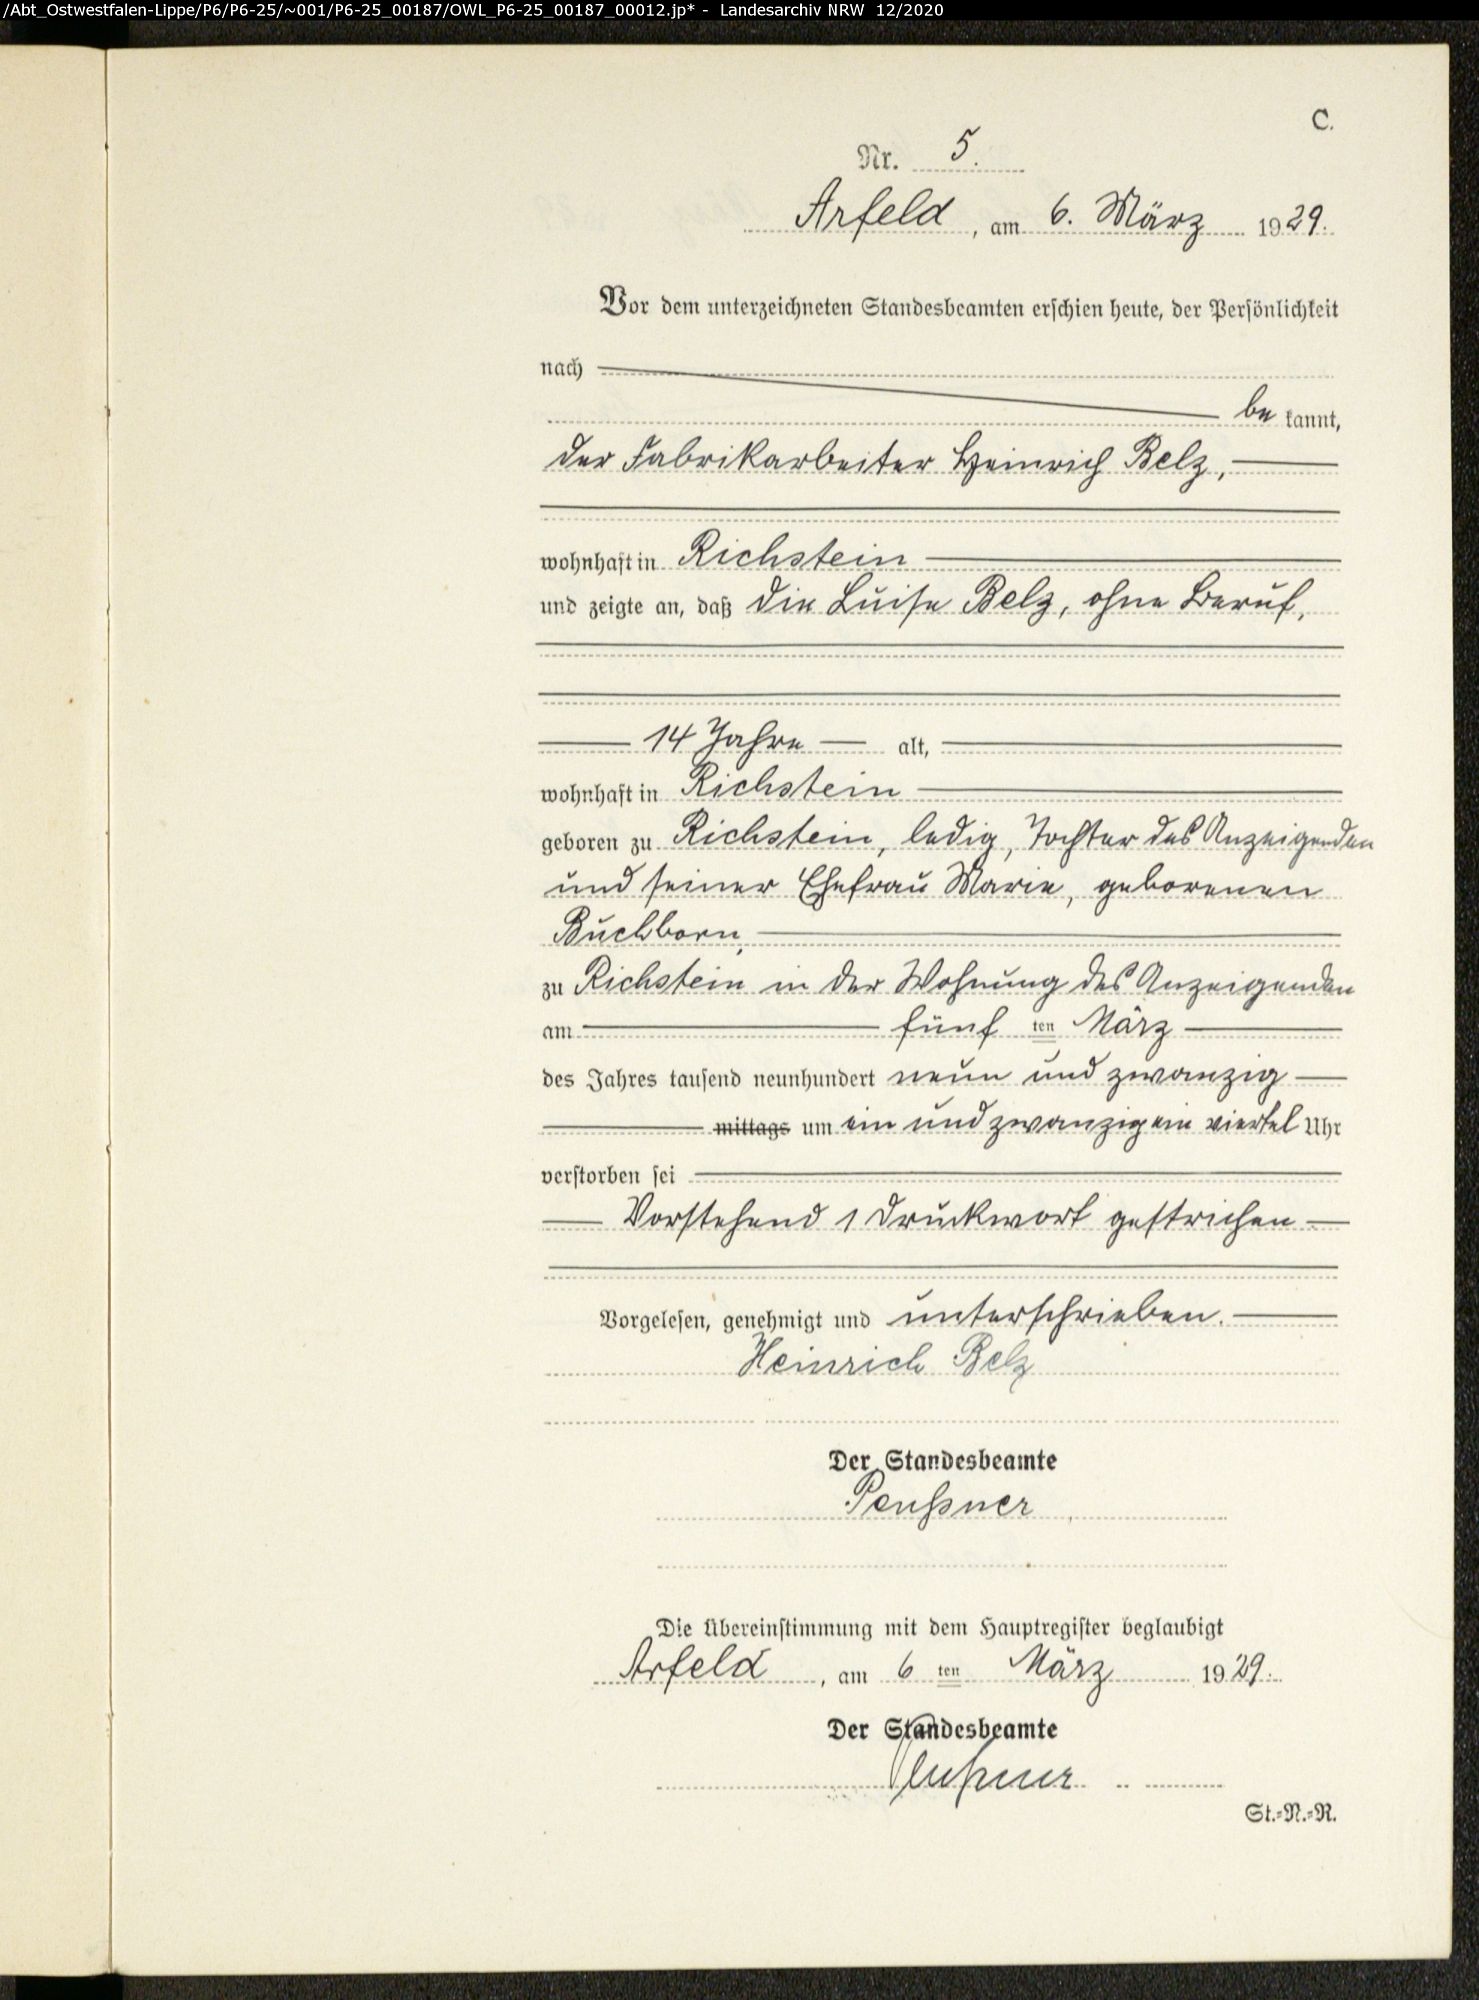 /Abt_Ostwestfalen-Lippe/P6/P6-25/~001/P6-25_00187/OWL_P6-25_00187_00012.jp* - Landesarchiv NRW 12/2020
C.
Nr. 5.
Arfeld, am 6. März 1929.
Vor dem unterzeichneten Standesbeamten erschien heute, der Persönlichkeit
nach
be kannt,
der Fabrikarbeiter Heinrich Belz,
wohnhaft in Richstein
und zeigte an, daß die Luise Belz, ohne Beruf,
14 Jahre alt,
wohnhaft in Richstein
geboren zu Richstein, ledig, Tochter des Anzeigenden
und seiner Ehefrau Marie, geborenen
Buchborn,
zu Richstein in der Wohnung des Anzeigenden
am fünf ten März
des Jahres tausend neunhundert neun und zwanzig
mittags um ein und zwanzig ein viertel Uhr
verstorben sei
Vorstehend 1 Druckwort gestrichen
Vorgelesen, genehmigt und unterschrieben.
Heinrich Belz
Der Standesbeamte
Die Übereinstimmung mit dem Hauptregister beglaubigt
Arfeld, am 6 ten März 1929.
Der Standesbeamte
St.=N.=R.